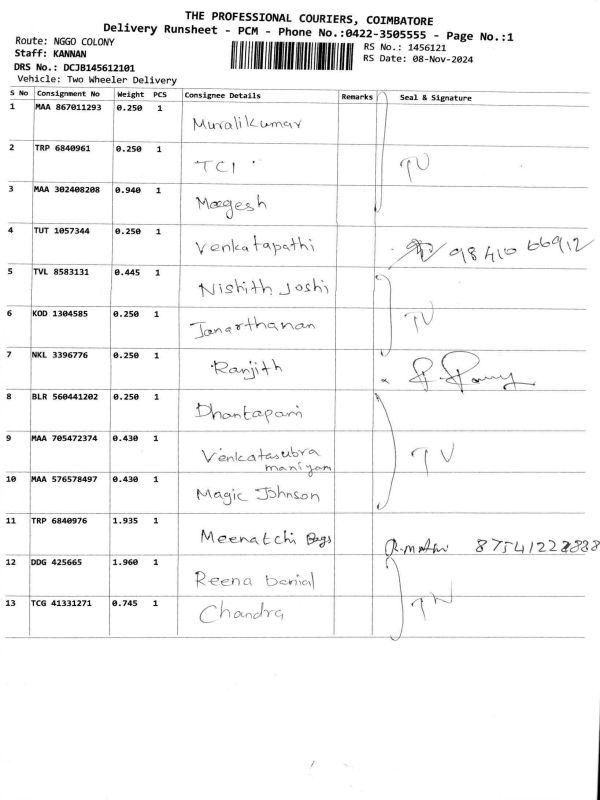 THE PROFESSIONAL COURIERS, COIMBATORE
Delivery Runsheet - PCM - Phone No.:0422-3505555 - Page No.:1
Route: NGGO COLONY
RS No.: 1456121
Staff: KANNAN
RS Date: 08-Nov-2024
DRS No.: DCJB145612101
Vehicle: Two Wheeler Delivery
S No Consignment No Weight PCS Consignee Details Remarks Seal & Signature
1 MAA 867011293 0.250 1
Muralikumar
2 TRP 6840961 0.250 1
TCI TV
3 MAA 302408208 0.940 1
Magesh
4 TUT 1057344 0.250 1
Venkatapathi 98410 66912
5 TVL 8583131 0.445 1
Nishith Joshi
6 KOD 1304585 0.250 1
Janarthanan TV
7 NKL 3396776 0.250 1
Ranjith
8 BLR 560441202 0.250 1
Dhantapani
9 MAA 705472374 0.430 1
Venkatasubra TV
maniyam
10 MAA 576578497 0.430 1
Magic Johnson
11 TRP 6840976 1.935 1
Meenatchi Bags
12 DDG 425665 1.960 1
Reena Danial
13 TCG 41331271 0.745 1
Chandra